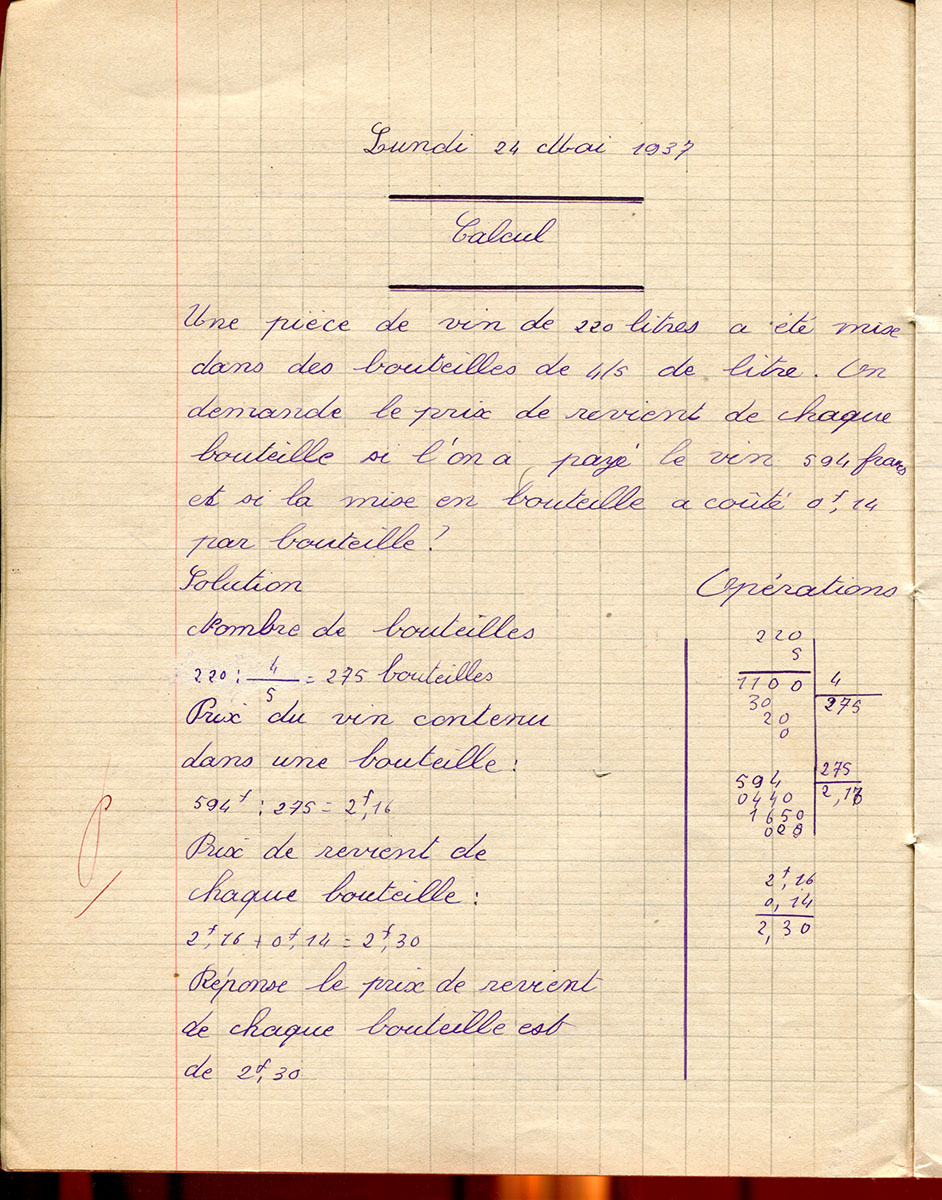 Lundi 24 Mai 1937
Calcul
Une pièce de vin de 220 litres a été mise
dans des bouteilles de 4/5 de litre. On
demande le prix de revient de chaque
bouteille si l'on a payé le vin 594 francs
et si la mise en bouteille a coûté 0f,14
par bouteille?
Solution
Nombre de bouteilles
220 : 4/5 = 275 bouteilles
Prix du vin contenu
dans une bouteille :
594f : 275 = 2f,16
Prix de revient de
chaque bouteille :
2f,16 + 0f,14 = 2f,30
Réponse le prix de revient
de chaque bouteille est
de 2f,30
Opérations
220
5
1100 4
30 275
20
0
594 275
0440 2,16
1650
000
2f,16
0,14
2,30